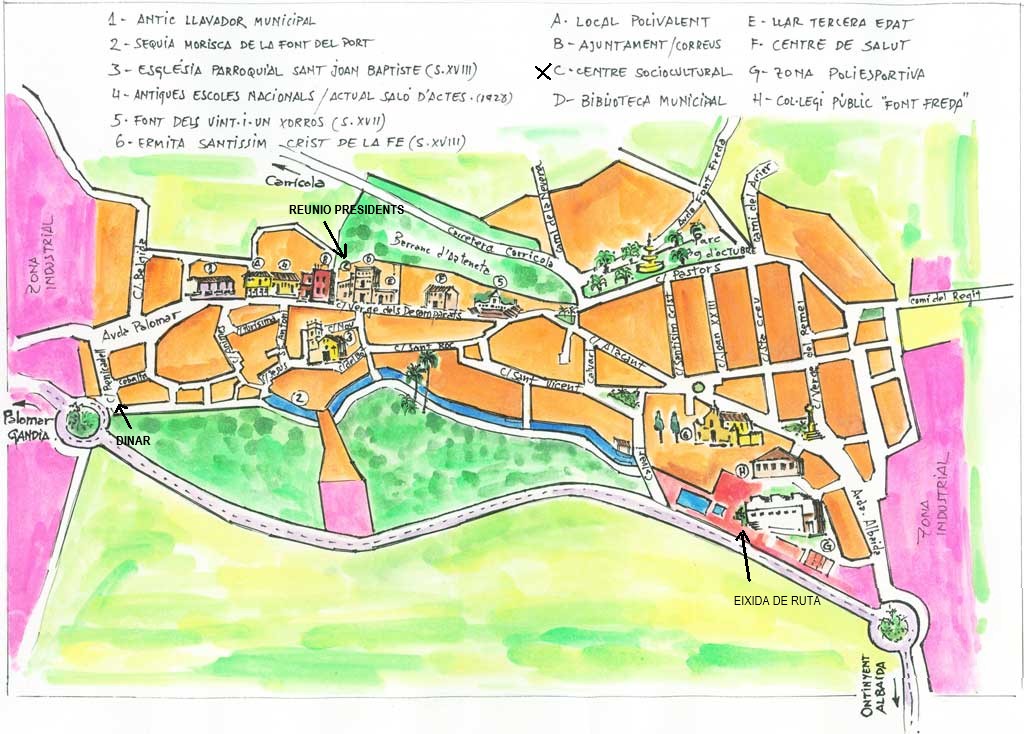 1- ANTIC LLAVADOR MUNICIPAL
2- SEQUIA MORISCA DE LA FONT DEL PORT
3- ESGLÉSIA PARROQUIAL SANT JOAN BAPTISTE (S.XVIII)
4- ANTIGUES ESCOLES NACIONALS / ACTUAL SALÓ D'ACTES. (1928)
5- FONT DELS VINT-I-UN XORROS (S.XVII)
6- ERMITA SANTISSIM CRIST DE LA FE (S.XVIII)
A- LOCAL POLIVALENT
B- AJUNTAMENT/CORREUS
C- CENTRE SOCIOCULTURAL
D- BIBLIOTECA MUNICIPAL
E- LLAR TERCERA EDAT
F- CENTRE DE SALUT
G- ZONA POLIESPORTIVA
H- COL·LEGI PÚBLIC "FONT FREDA"
Carrícola
REUNIO PRESIDENTS
Carretera Carrícola
Barranc d'Dateneta
Camí de la Nevera
Avda Font Freda
Camí del Arier
Parc
9 d'OCTUBRE
C/ Pastors
Camí del Regit
ZONA INDUSTRIAL
C/ Belgida
Avda Palomar
C/ Verge dels Desamparats
C/ Sant Roc
C/ Alacant
C/ Sant Vicent
Calvari
C/ Benissim scrit
C/ Joan XXIII
C/ Sta Creu
C/ Verge del Remei
C/ Nou
C/ Purissima
C/ Benicadell
Cabella
Palomar
GANDIA
DINAR
2
3
5
6
H
G
F
B
Calvari
Avda. Albaida
ZONA INDUSTRIAL
EIXIDA DE RUTA
ONTINYENT
ALBAIDA